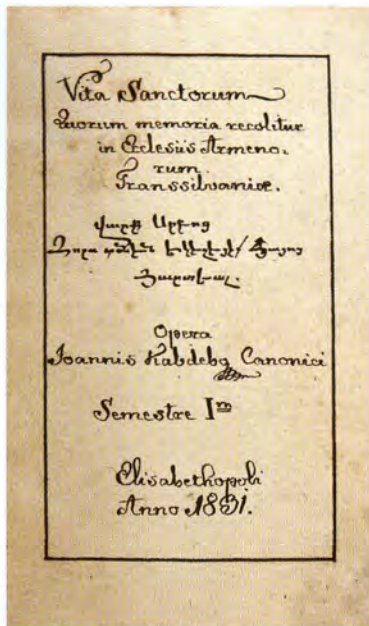 Vita Sanctorum
Quorum memoria recolitur
in Ecclesiis Armeno.
rum
Transsilvaniæ.
վարք Սրբոց
Opera
Joannis Kabdebo Canonici
Semestre Im
Elisabethopoli
Anno 1831.